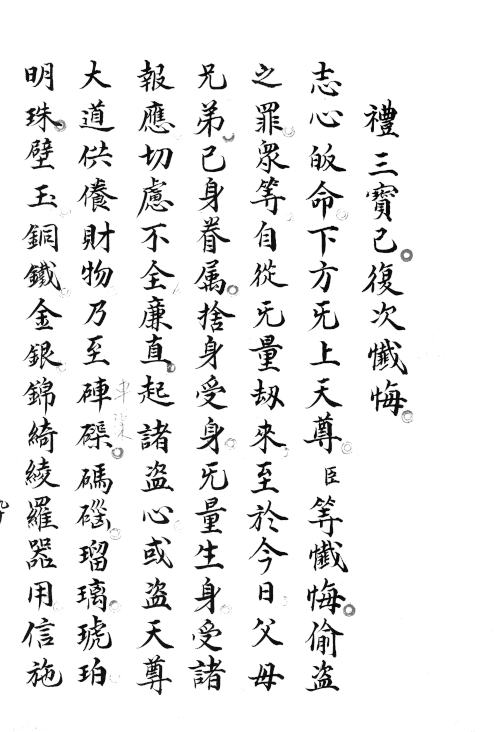 禮三寳已復次懴悔
志心皈命下方旡上天尊臣等懴悔偷盗
之罪衆等自從旡量刼來至於今日父母
兄弟己身眷属捨身受身旡量生身受諸
報應切慮不全廉直起諸盗心或盗天尊
大道供飬財物乃至硨磲碼碯瑠璃琥珀
明珠壁玉銅鐵金銀錦綺綾羅器用信施